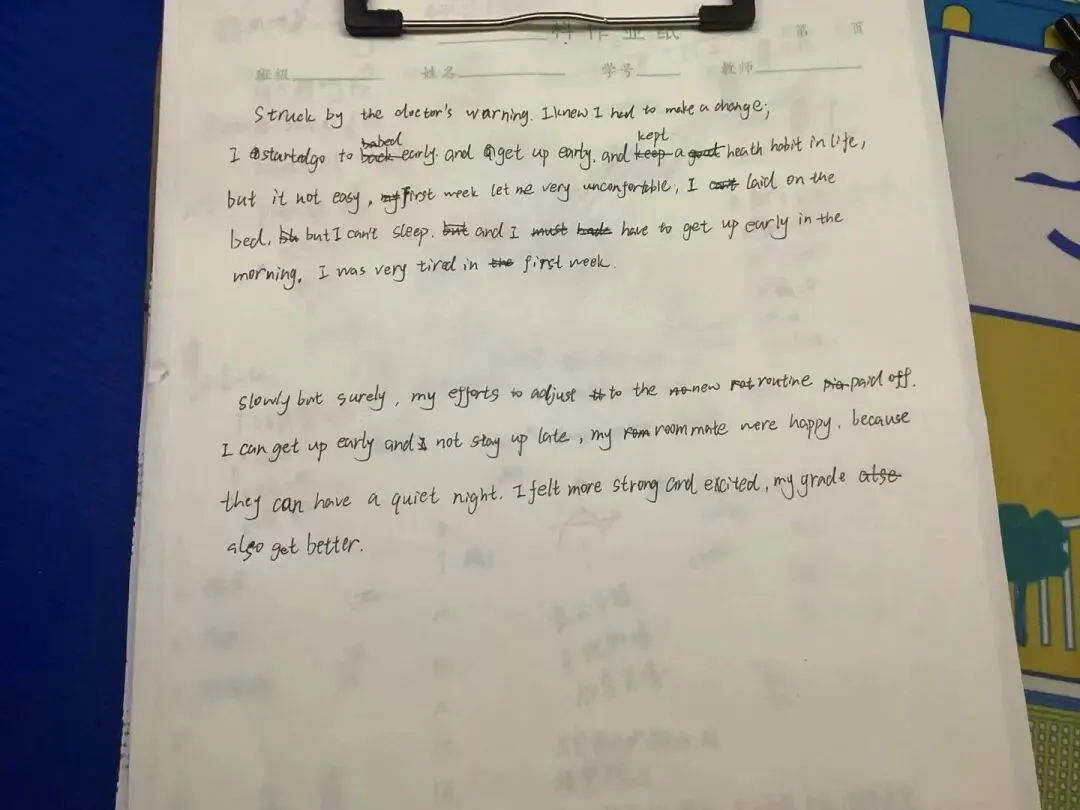 料作业纸 第 页
班级 姓名 学号 教师
Struck by the doctor's warning. I knew I had to make a change;
babed kept
I startdgo to back early. and get up early. and keep a good heath habit in life,
but it not easy, my first week let me very unconfortable, I can't laid on the
bed. but I can't sleep. but and I must have to get up early in the
morning. I was very tired in the first week.
Slowly but surely, my efforts to adjust to the new routine paid off.
I can get up early and not stay up late, my roommate were happy. because
they can have a quiet night. I felt more strong and excited, my grade also
also get better.